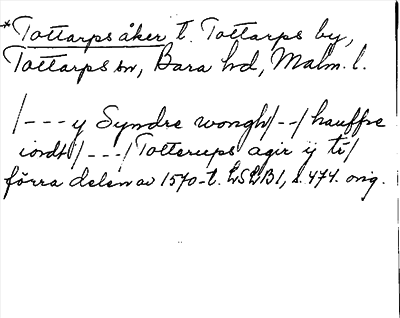 *Tottarps åker t. Tottarps by,
Tottarps sn, Bara hd, Malm. l.
/---y Syndre wongh/--/hauffve
iordt/---/Totterups agir ij ti/
förra delen av 1570-t. LSLB1, s. 474. orig.